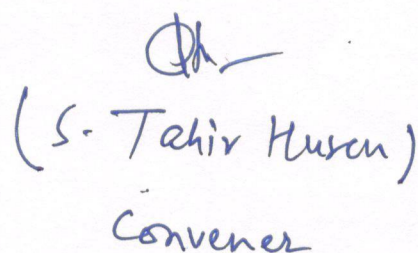 (S. Tahir Husen)
Convener